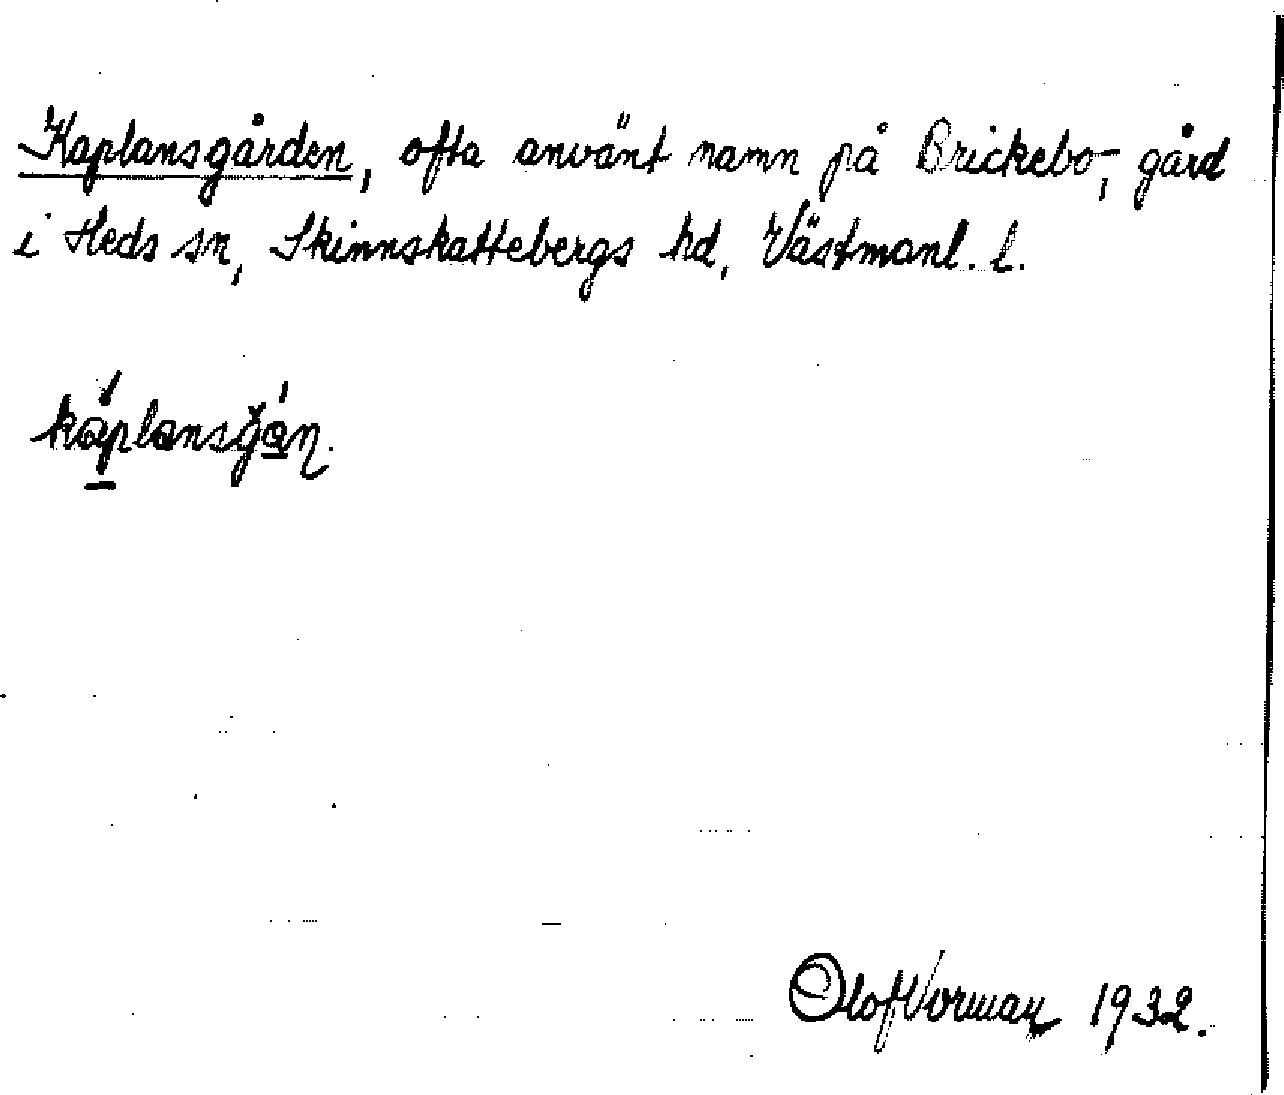 Kaplansgården, ofta använt namn på Brickebo, gård
i Heds sn, Skinnskattebergs hd, Västmanl. l.
káplansgán.
Olof Norman 1932.